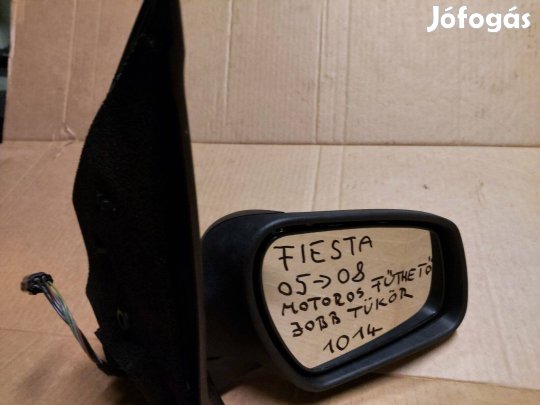 Jófogás
FIESTA
05→08
MOTOROS FŰTHETŐ
JOBB TÜKÖR
1014